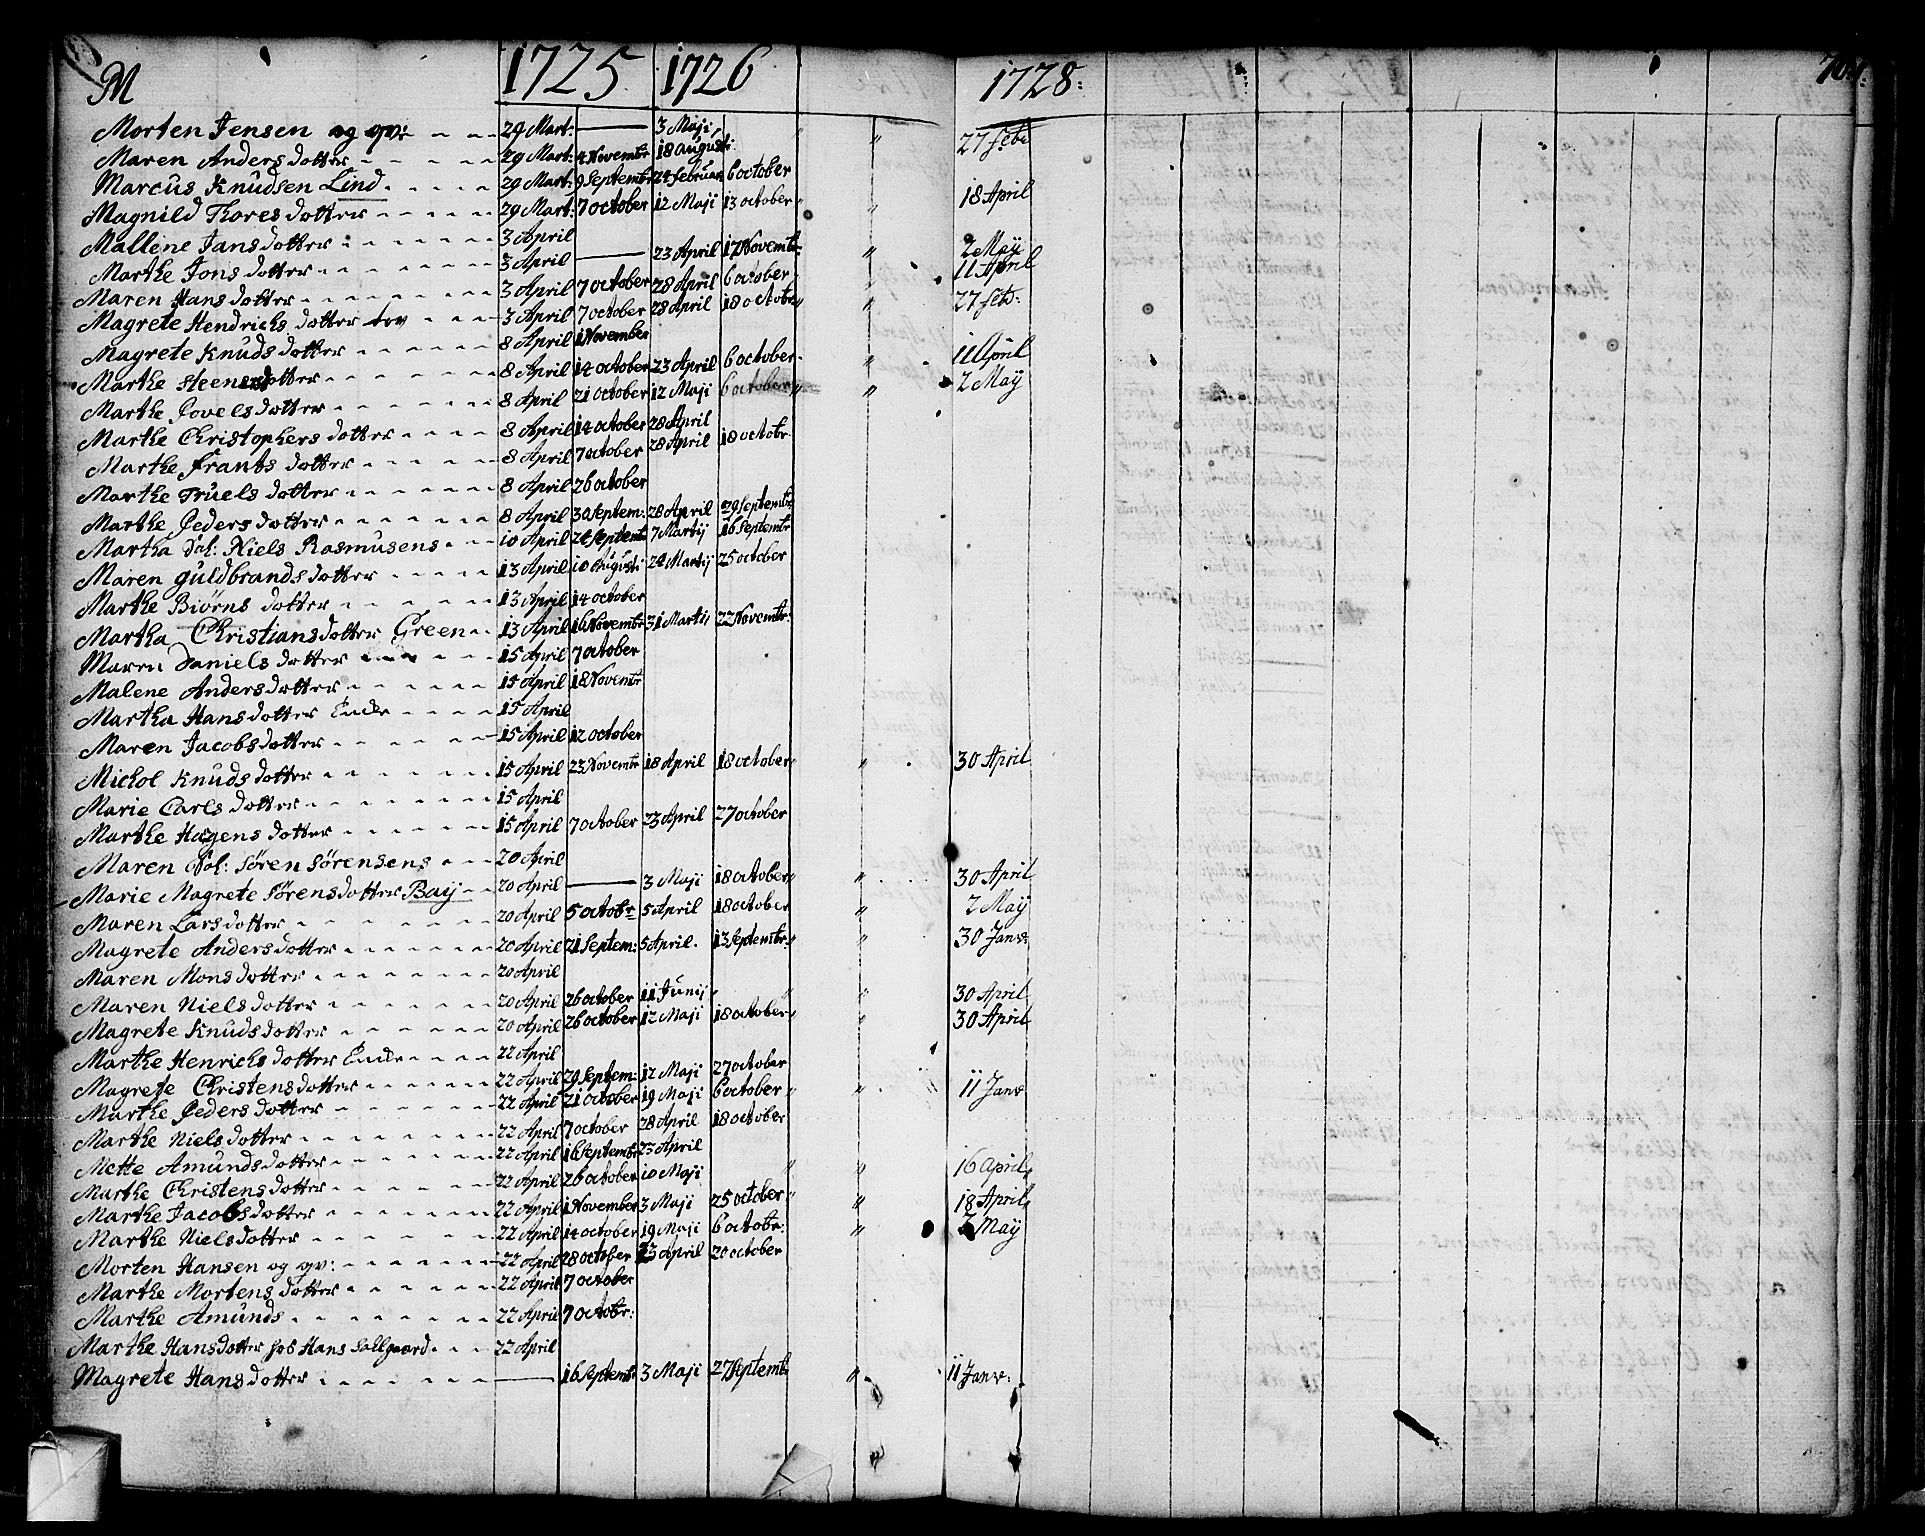 M 1725. 1726 1728: 704.
Morten Jensen og qv: 29 Mart: — 3 Maji, " " 27 feb:
Maren Anders dotter 29 Mart: 4 Novembr 18 Augusti
Marcus Knudsen Lind 29 Mart: 9 Septembr 24 februar 6 october
Magnild Thores dotter 29 Mart: 7 october 12 Maji 13 october " " 18 April
Mallene Jans dotter 3 April
Marthe Jons dotter 3 April — 23 April 17 Novembr " 2 Maÿ
Maren Hans dotter 3 April 7 october 28 April 6 october " " 11 April
Magrete Hendrichs dotter 3 April 7 october 28 April 18 octobr " " 27 feb:
Magrete Knuds dotter 8 April 1 November
Marthe Steens dotter 8 April 14 october 23 April 6 october " 11 April
Marthe Povels dotter 8 April 21 october 12 Maji 6 october " " 2 Maÿ
Marthe Christophers dotter 8 April 14 october 28 April
Marthe Frants dotter 8 April 7 october 28 April 18 octobr.
Marthe Truels dotter 8 April 26 october
Marthe Peders dotter 8 April 30 Septem: 28 April 29 Septembr
Martha Sal: Niels Rasmusens 10 April 24 Septembr 7 Martij 16 Septembr
Maren Guldbrands dotter 13 April 10 Augusti 24 Martij 25 october
Marthe Biørns dotter 13 April 14 october
Martha Christians dotter Green 13 April 16 Novembr 31 Martij 22 Novembr:
Maren Daniels dotter 15 April 7 october
Malene Anders dotter 15 April 18 Novembr
Martha Hans dotter Enche 15 April
Maren Jacobs dotter 15 April 12 october
Michol Knuds dotter 15 April 23 Novembr 18 April 18 october " " 30 April
Marie Carls dotter 15 April
Marthe Hagens dotter 15 April 7 october 23 April 27 october
Maren Sal: Sören Sörensens 20 April
Marie Magrete Sörens dotter Baÿ 20 April — 3 Maji 18 october " " 30 April
Maren Lars dotter 20 April 5 octobr 5 April 18 october " 2 Maÿ
Magrete Anders dotter 20 April 21 Septem: 5 April. 13 Septembr: " " 30 Janv:
Maren Mons dotter 20 April
Maren Niels dotter 20 April 26 october 11 Junij " " 30 April
Magrete Knuds dotter 20 April 26 october 12 Maji 18 october " " 30 April
Marthe Henrichs dotter Enche 22 April
Magrete Christens dotter 22 April 29 Septem: 12 Maji 27 october
Marthe Peders dotter 22 April 21 october 19 Maji 6 october " " 11 Janv
Marthe Niels dotter 22 April 7 october 28 April 18 october
Mette Amunds dotter 22 April 16 Septembr 23 April
Marthe Christens dotter 22 April 26 october 10 Maji " " 16 April
Marthe Jacobs dotter 22 April 1 November 3 Maji 25 october " " 18 April
Marthe Niels dotter 22 April 14 october 19 Maji 6 octobr: " 2 Maÿ
Morten Hansen og qv: 22 April 28 october 23 April 20 october
Marthe Mortens dotter 22 April 7 october
Marthe Amunds 22 April 7 octobr:
Marthe Hans dotter hos Hans Sollgaard 22 April
Magrete Hans dotter — 16 Septembr 3 Maji 27 Septembr " 11 Janv: